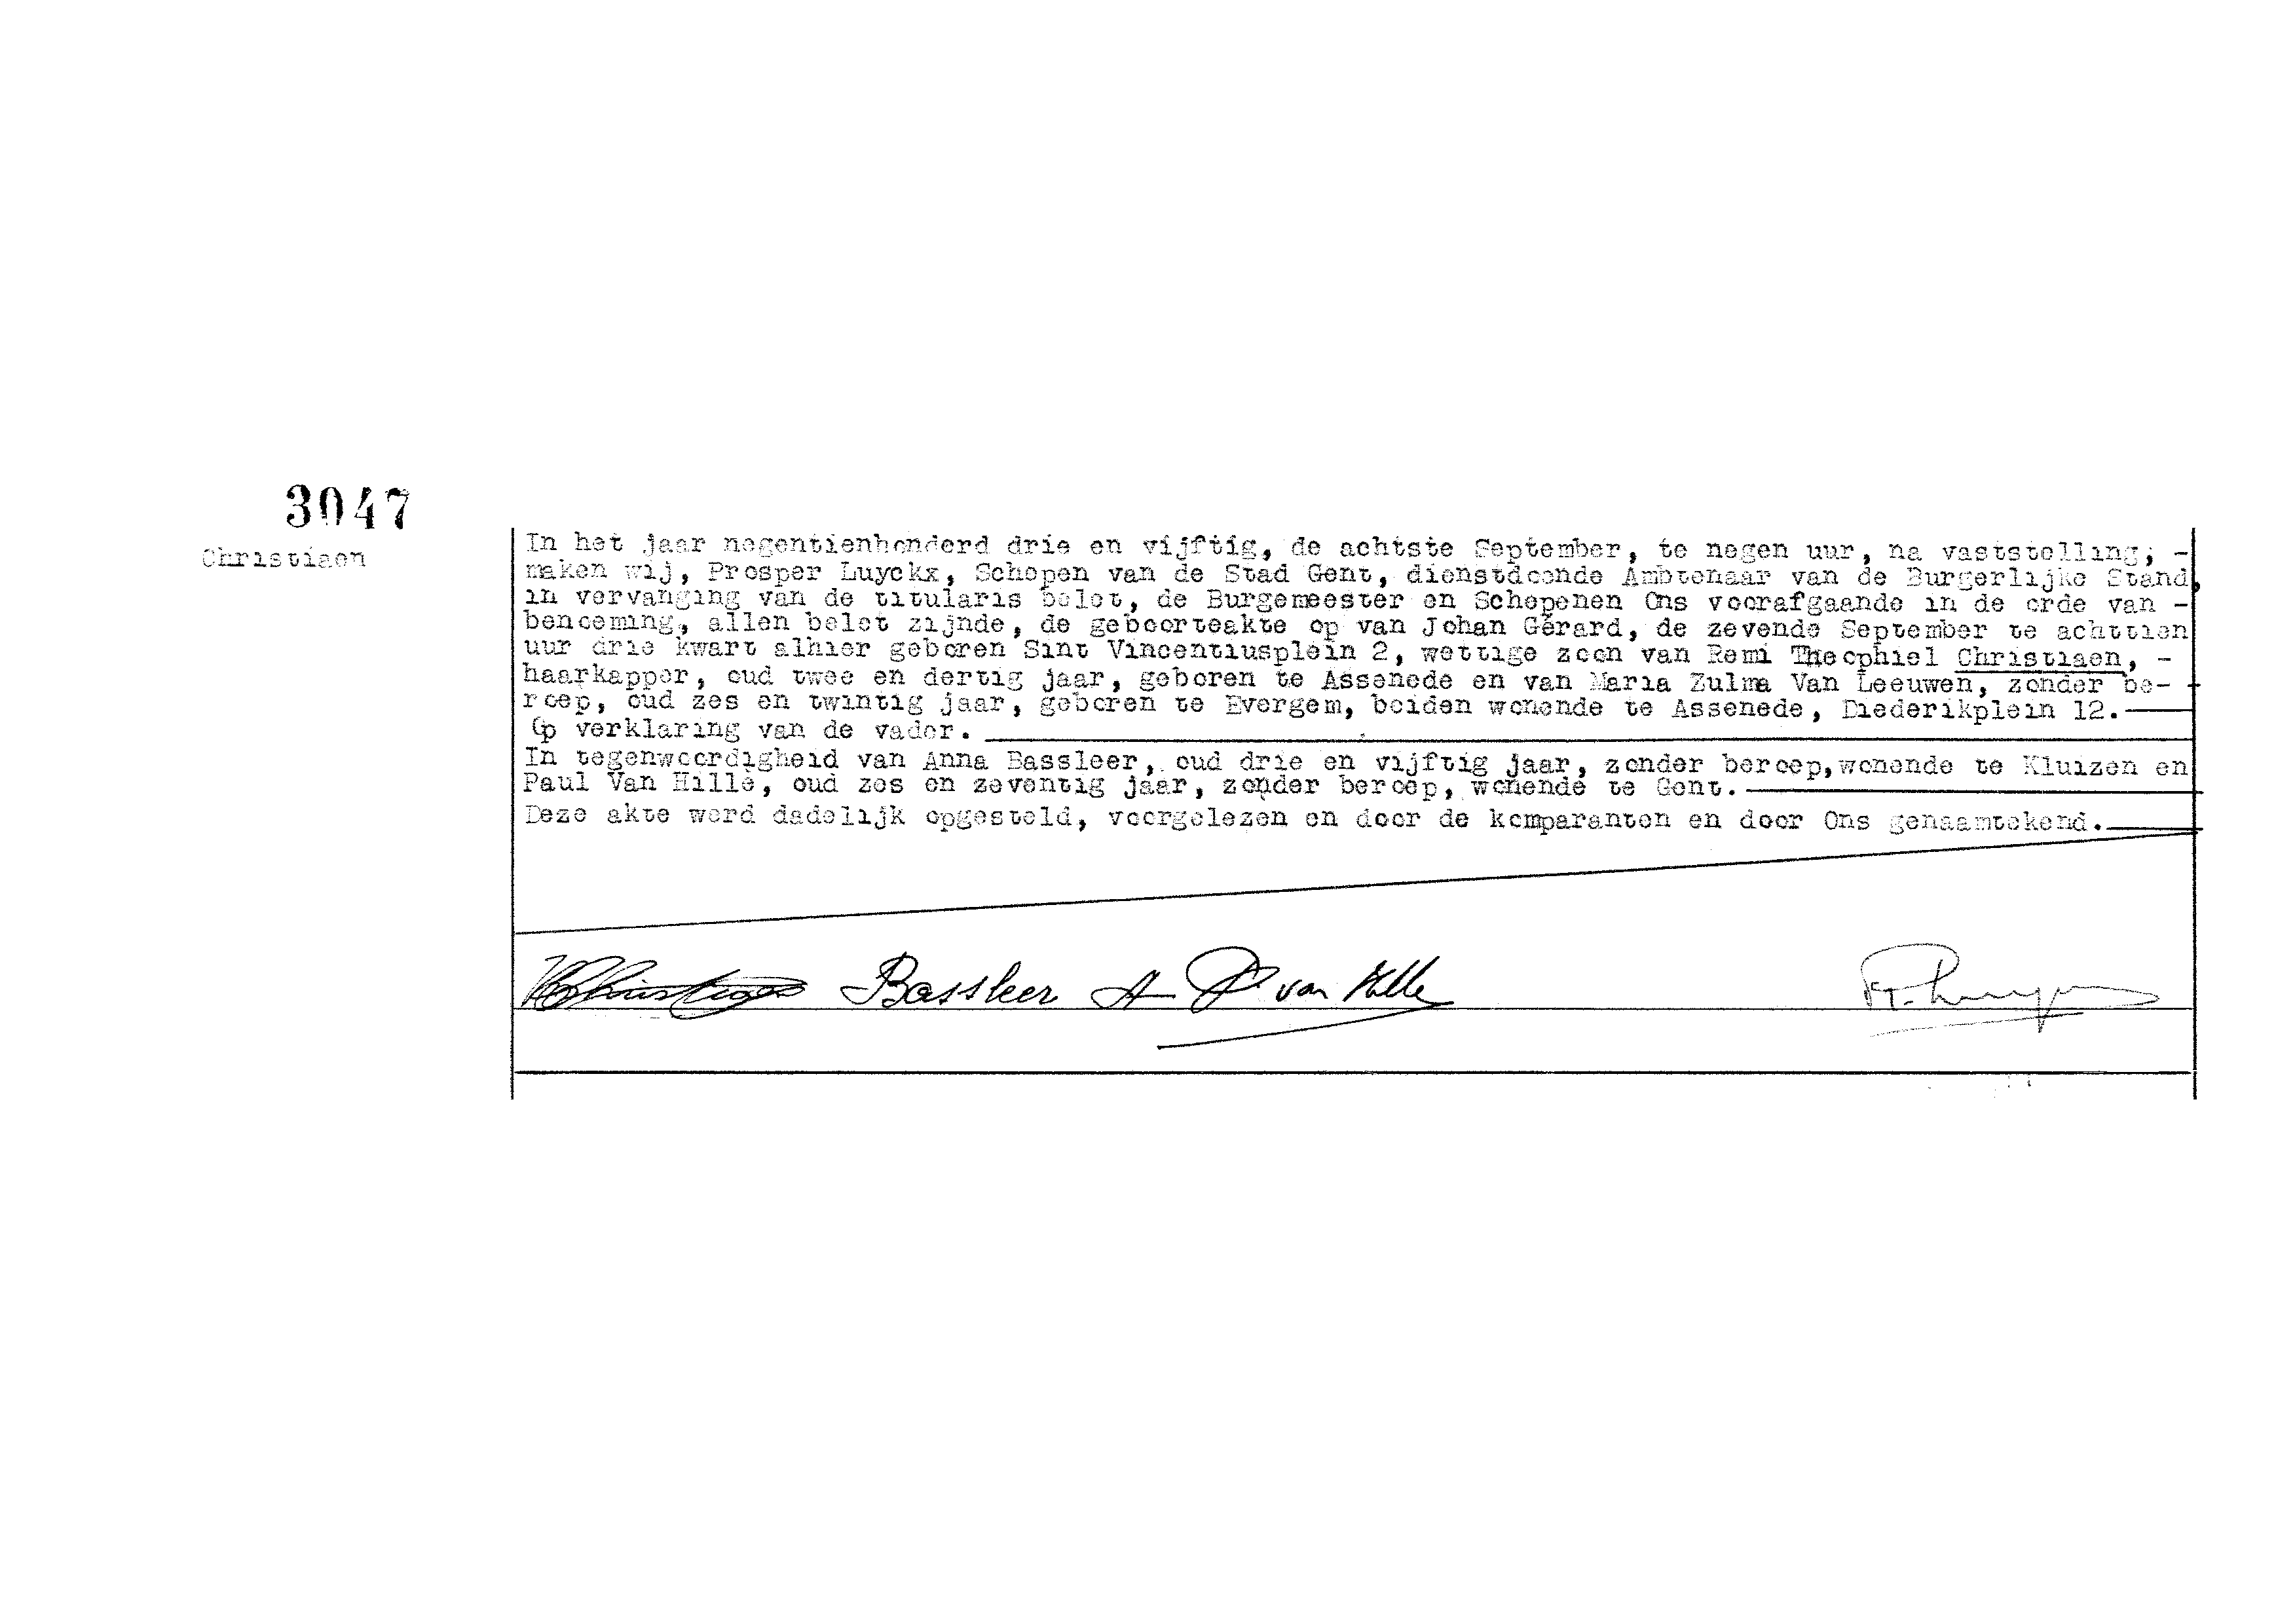 3047
Christiaen
In het jaar negentienhonderd drie en vijftig, de achtste September, te negen uur, na vaststelling, -
maken wij, Prosper Luyckx, Schepen van de Stad Gent, dienstdoende Ambtenaar van de Burgerlijke Stand,
in vervanging van de titularis belet, de Burgemeester en Schepenen Ons voorafgaande in de orde van -
benoeming, allen belet zijnde, de geboorteakte op van Johan Gérard, de zevende September te achttien
uur drie kwart alhier geboren Sint Vincentiusplein 2, wettige zoon van Remi Theophiel Christiaen, -
haarkapper, oud twee en dertig jaar, geboren te Assenede en van Maria Zulma Van Leeuwen, zonder be-
roep, oud zes en twintig jaar, geboren te Evergem, beiden wonende te Assenede, Diederikplein 12.
Op verklaring van de vader.
In tegenwoordigheid van Anna Bassleer, oud drie en vijftig jaar, zonder beroep, wonende te Kluizen en
Paul Van Hille, oud zes en zeventig jaar, zonder beroep, wonende te Gent.
Deze akte werd dadelijk opgesteld, voorgelezen en door de komparanten en door Ons genaamtekend.
Bassleer A P van Hille